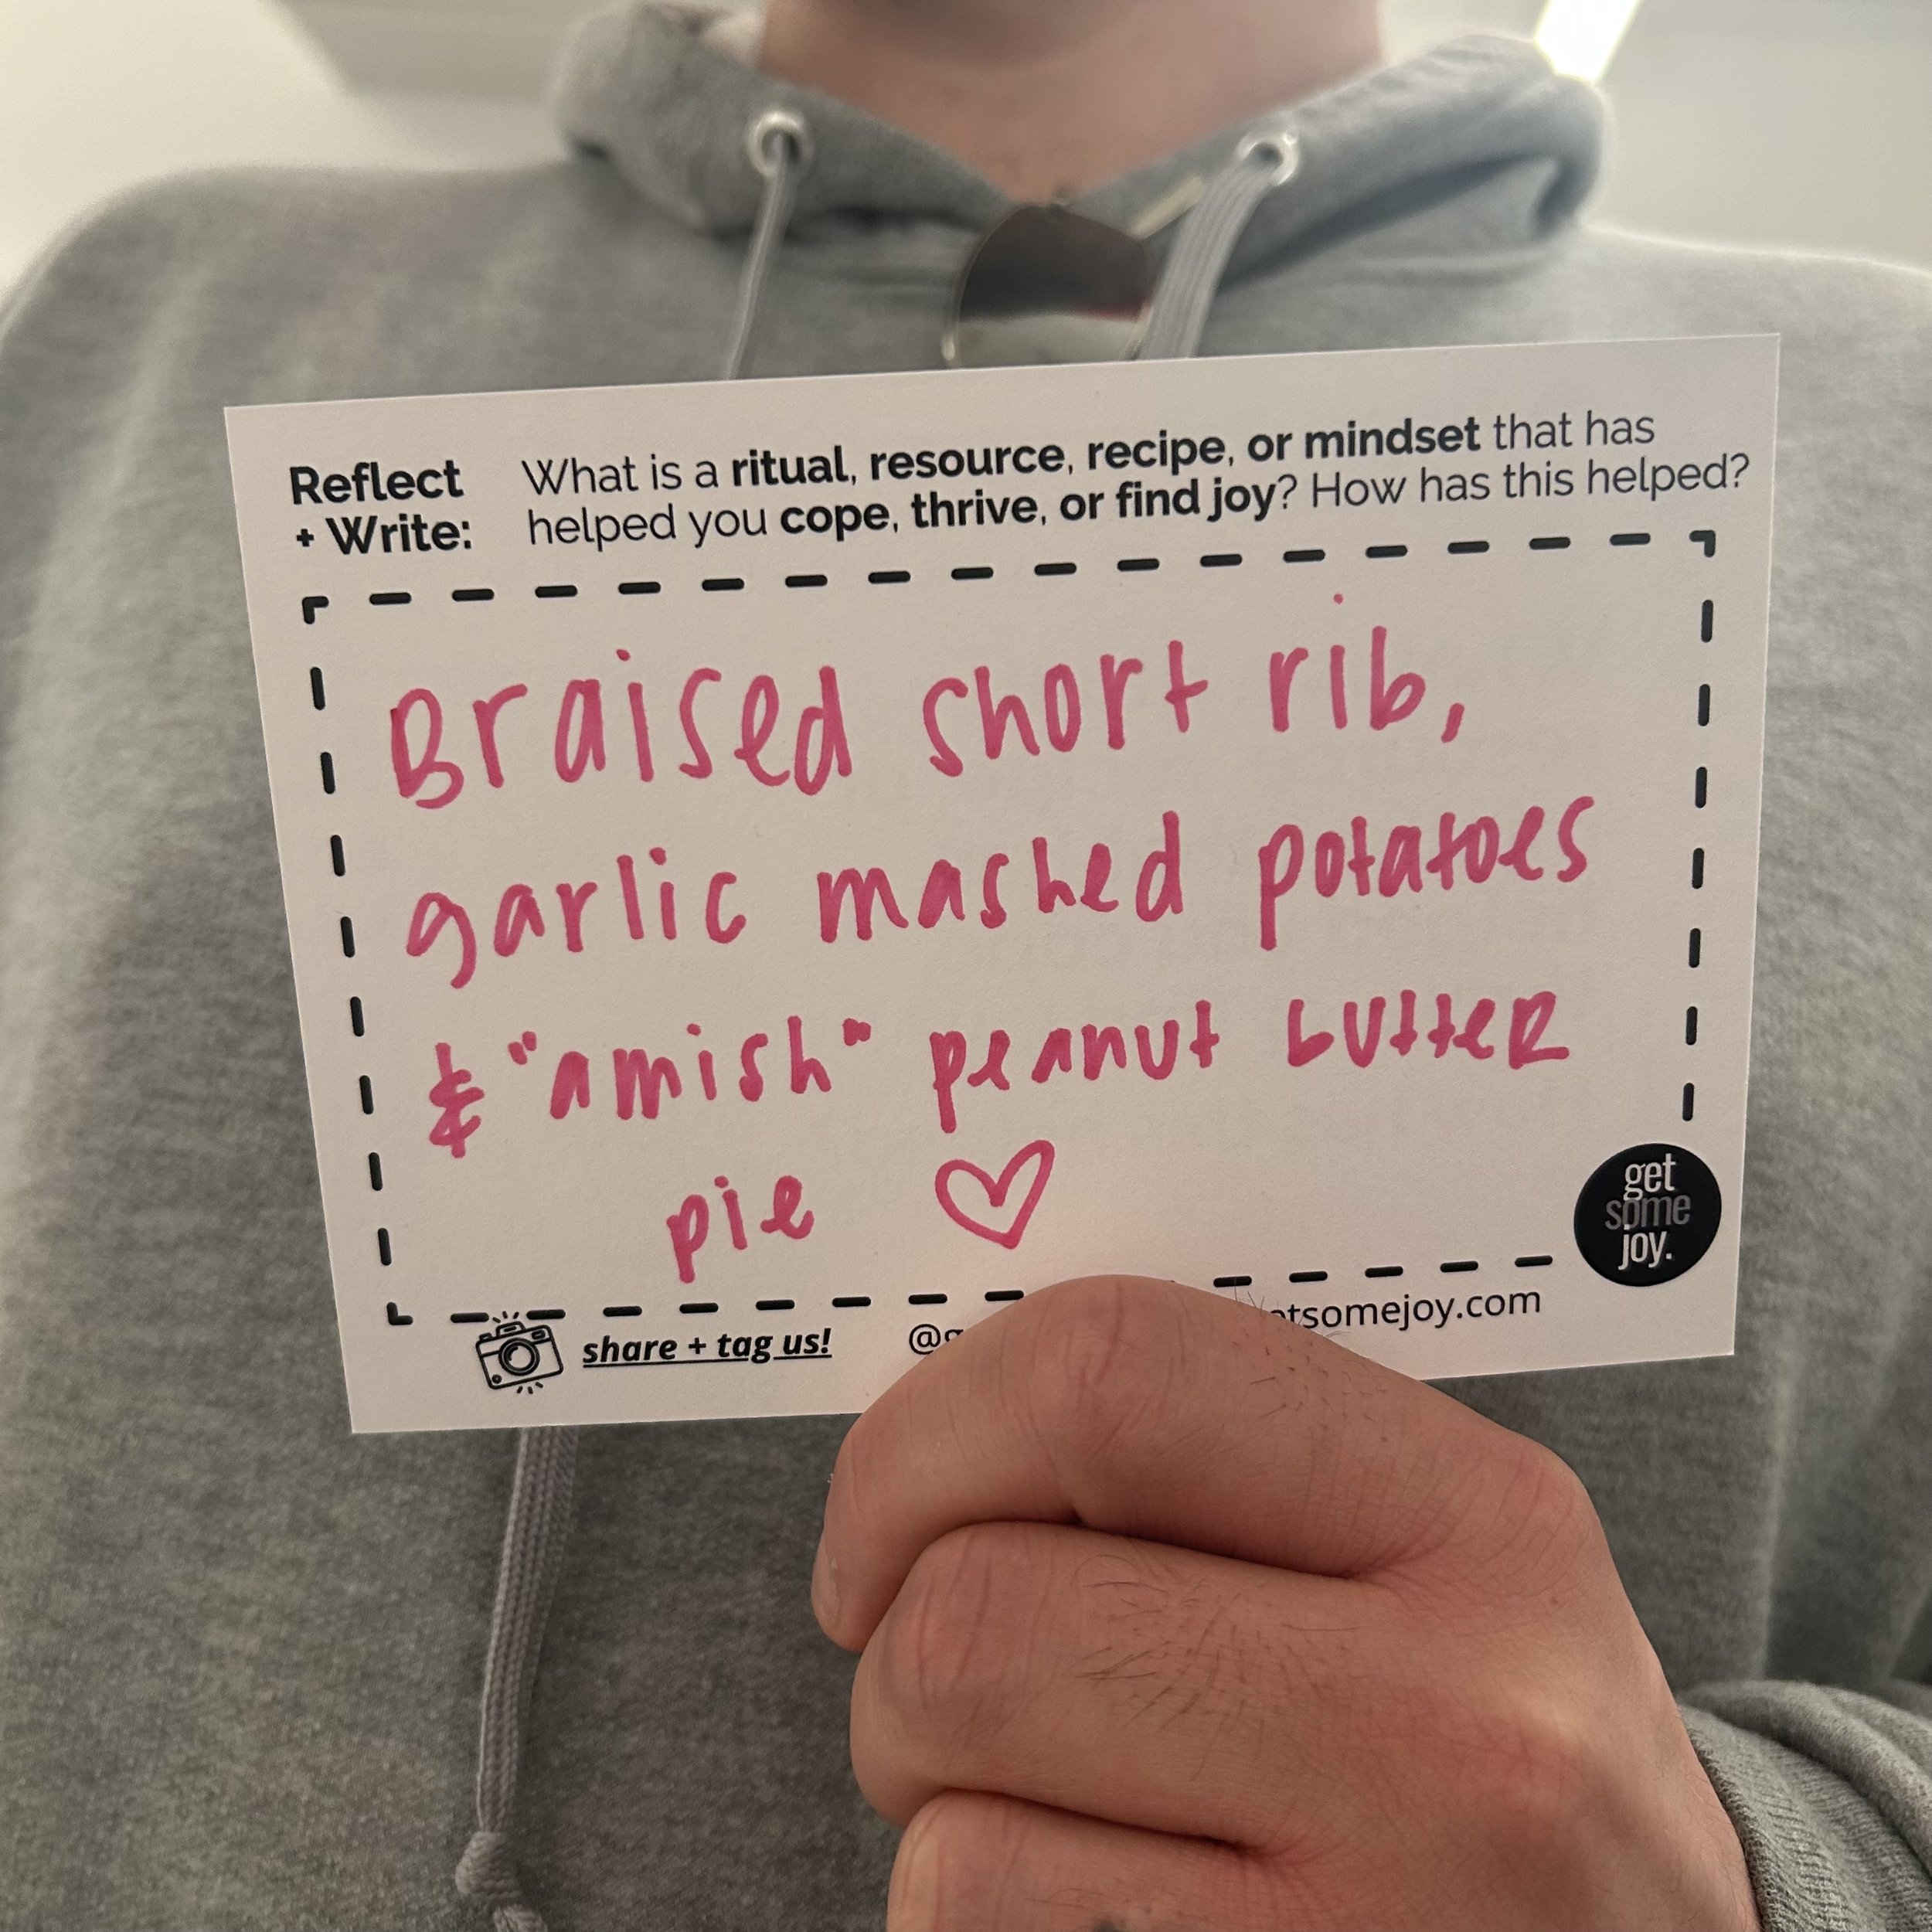 Reflect
+ Write:
What is a ritual, resource, recipe, or mindset that has
helped you cope, thrive, or find joy? How has this helped?
Braised short rib,
garlic mashed potatoes
& "amish" peanut butter
pie ♡
get
some
joy.
share + tag us!